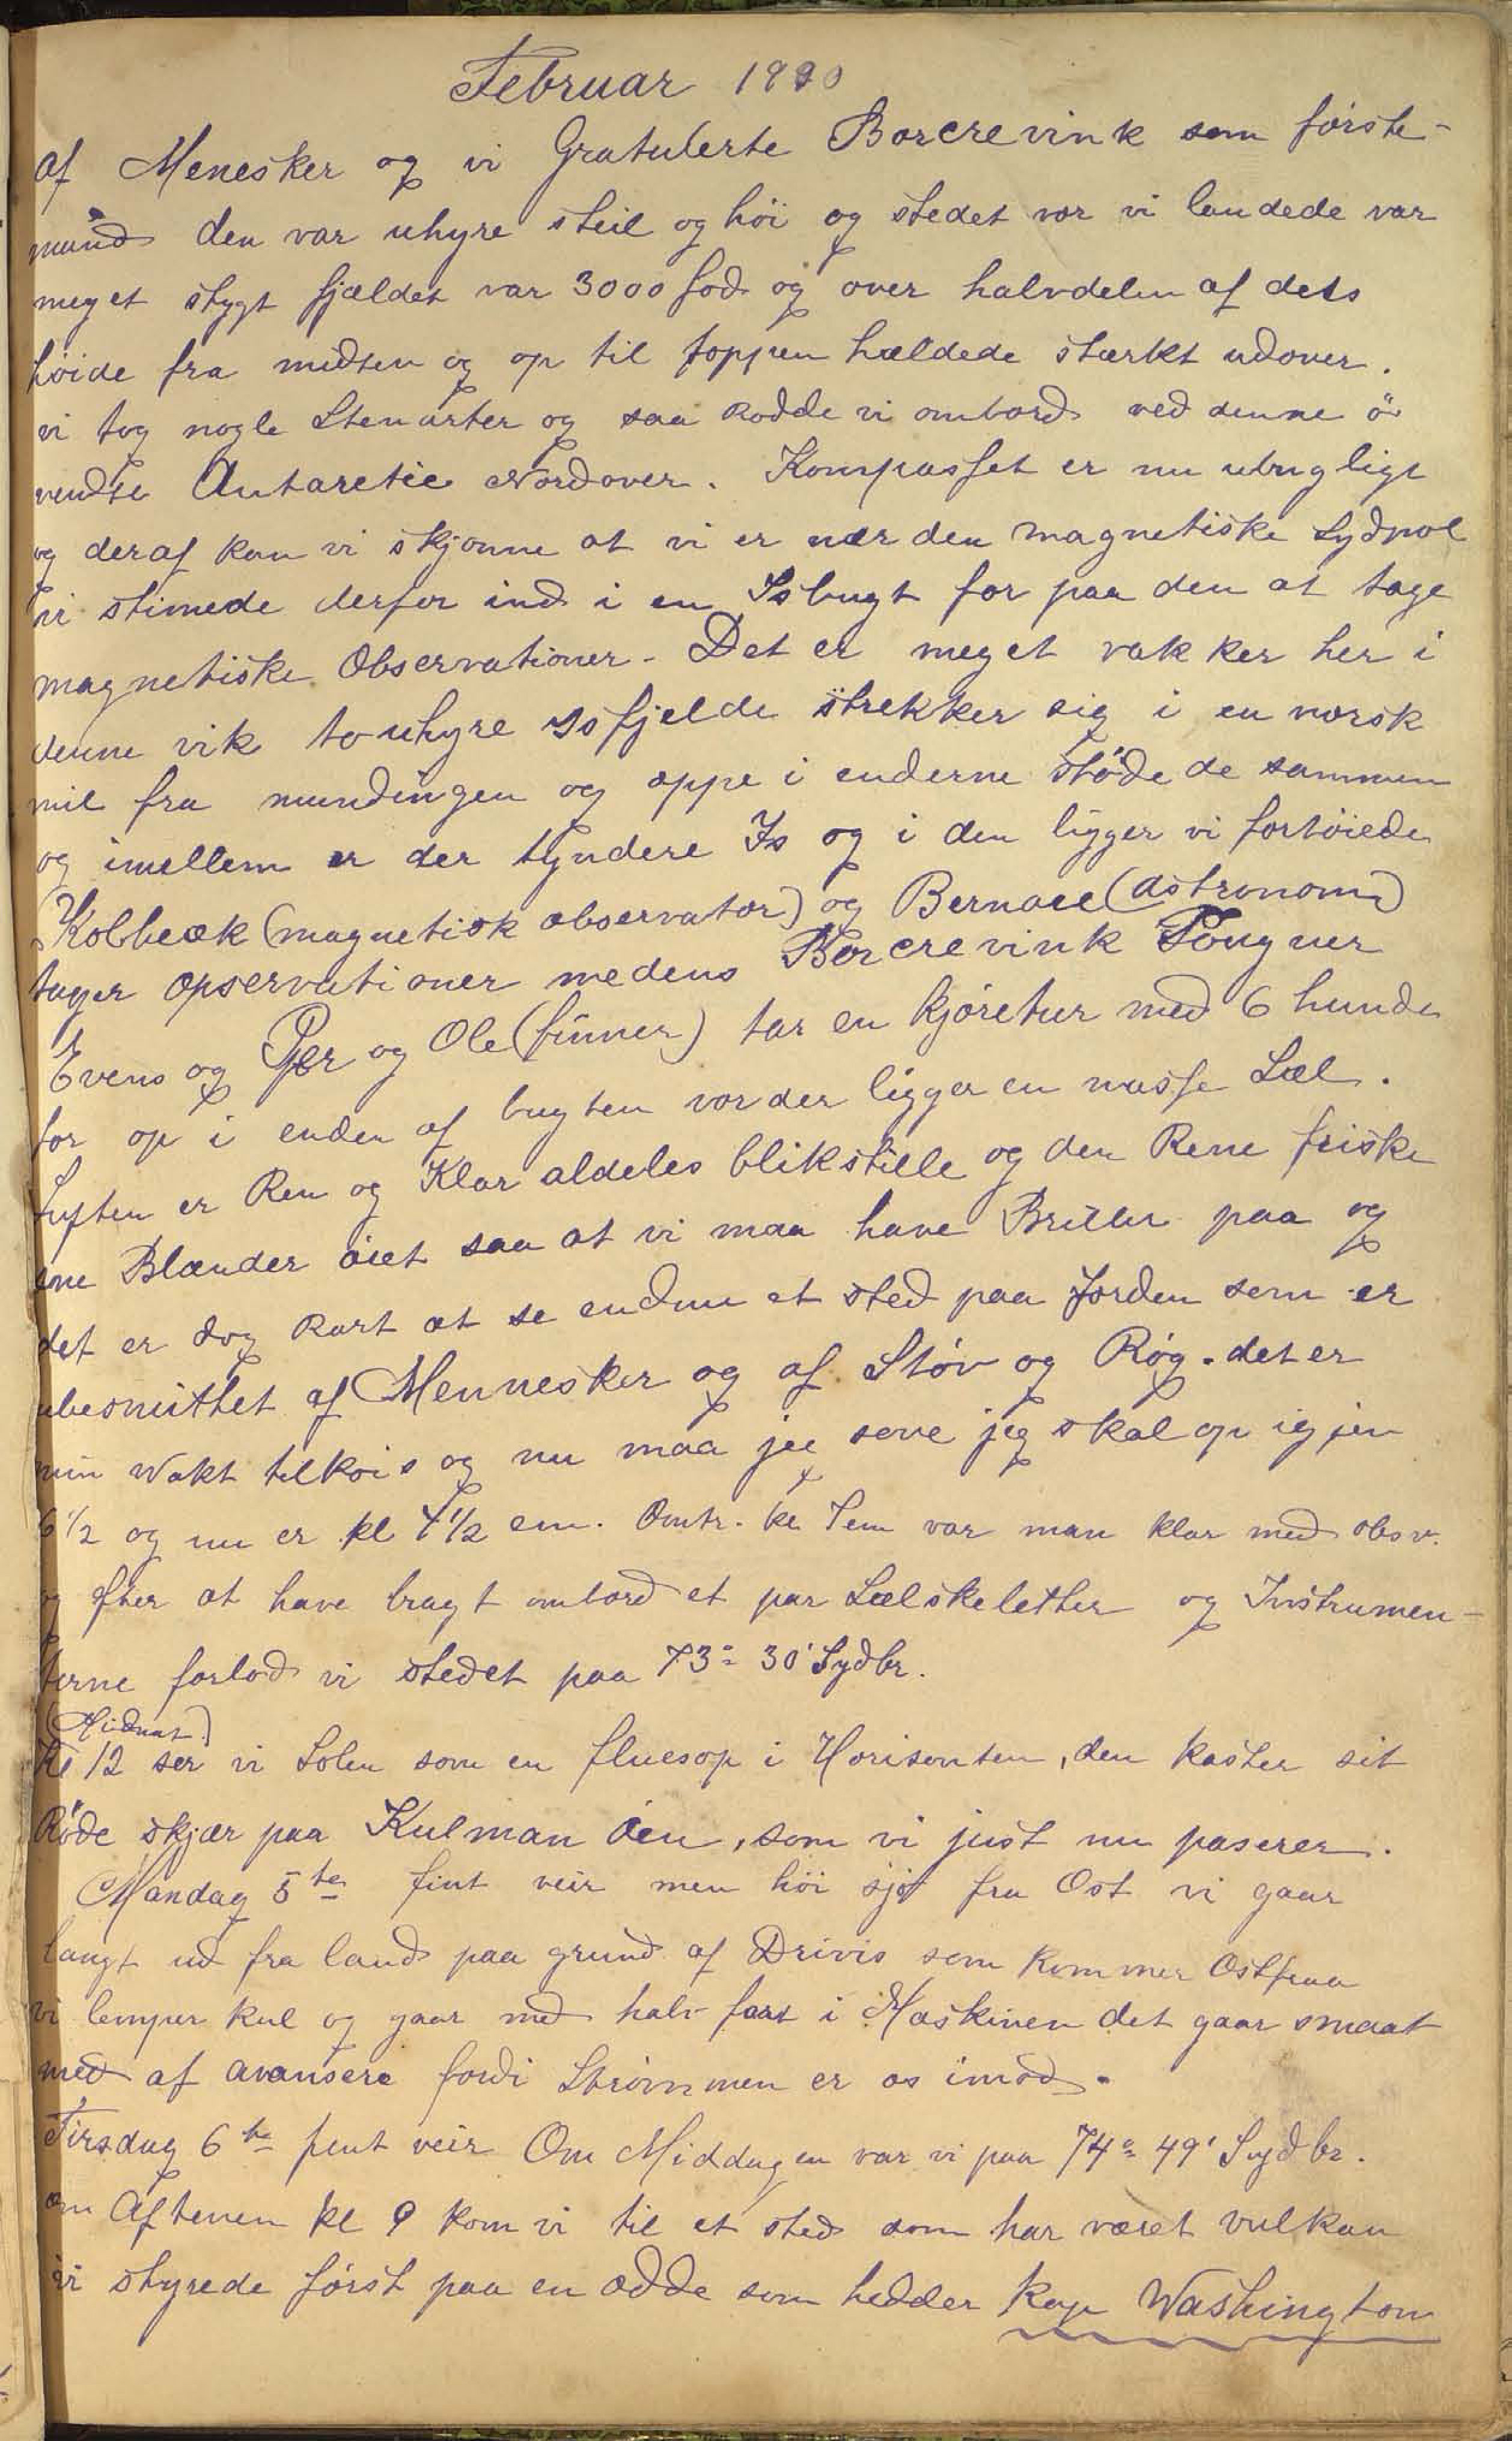 Februar 1900
af Menesker og vi Gratulerte Borcrevink som første-
mand den var uhyre steil og höi og stedet vor vi landede var
meget stygt fjældet var 3000 fod og over halvdelen af dets
höide fra midten og op til toppen hældede stærkt udover.
vi tog nogle Stenarter og saa Rodde vi ombord ved denne ö
vendte Antarctic Nordover. Kompasset er nu ubrugligt
og deraf kan vi skjønne at vi er nær den magnetiske Sydpol
vi stimede derfor ind i en Isbugt for paa den at tage
magnetiske Observationer - Det er meget vakker her i
denne vik to uhyre isfjelde strekker sig i en norsk
mil fra mundingen og oppe i enderne støde de sammen
og imellem er der tyndere Is og i den ligger vi fortöiede
Kolbeck (magnetisk observator) og Bernace (Astronom)
tager opservationer medens Borcrevink Fougner
Evens og Per og Ole (finner) tar en kjøretur med 6 hunde
for op i enden af bugten vor der ligger en masse Sæl.
Luften er Ren og Klar aldeles blikstille og den Rene friske
sne Blænder öiet saa at vi maa have Briller paa og
det er dog Rart at se endnu et sted paa Jorden som er
ubesmittet af Mennesker og af Støv og Røg. det er
min Vakt tilkois og nu maa jeg sove jeg skal op igjen
6 1/2 og nu er kl 4 1/2 em. Omtr. kl 7 em var man klar med obsv.
og efter at have bragt ombord et par Sælskeletter og Instrumen-
terne forlod vi stedet paa 73° 30' Sydbr.
(Midnat)
Kl 12 ser vi Solen som en fluesop i Horisonten, den kaster sit
Røde skjær paa Kulman öen, som vi just nu paserer.
Mandag 5te fint veir men höi sjø fra Ost vi gaar
langt ud fra land paa grund af Drivis som kommer Ostfraa
vi lemper kul og gaar med halv fart i Maskinen det gaar smaat
med af avansere fordi Strømmen er os imod.
Tirsdag 6te fint veir Om Middagen var vi paa 74° 49' Sydbr.
om Aftenen kl 9 kom vi til et sted som har været vulkan
vi styrede først paa en odde som hedder Kap Washington